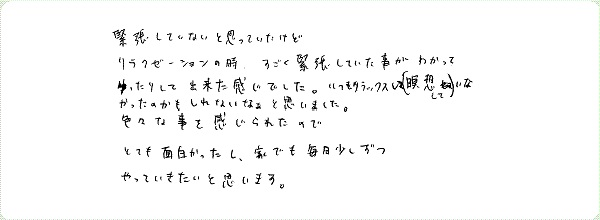 緊張していないと思っていたけど
リラクゼーションの時、すごく緊張していた事がわかって
ゆったりして出来た感じでした。いつもリラックスして(瞑想して)いな
かったのかもしれないなぁと思いました。
色々な事を感じられたので
とても面白かったし、家でも毎日少しずつ
やっていきたいと思います。